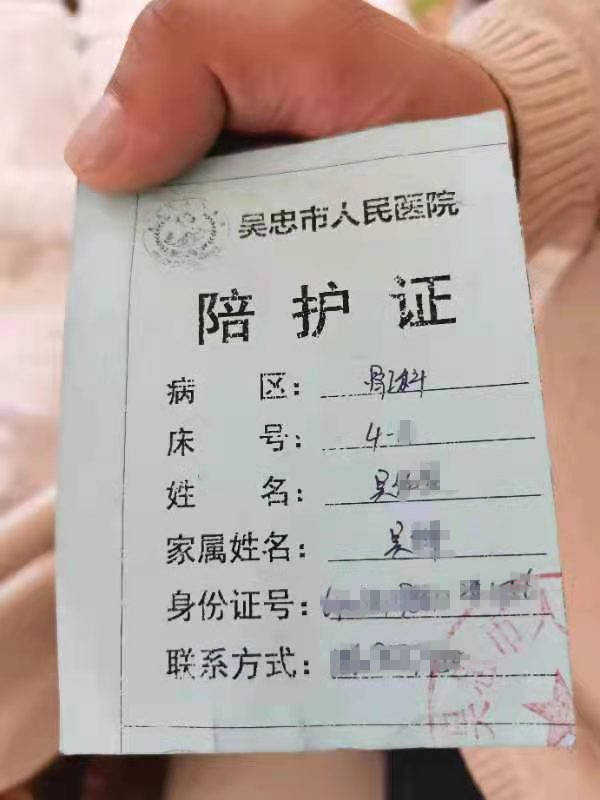 吴忠市人民医院
陪护证
病区：骨2科
床号：4-
姓名：吴
家属姓名：吴
身份证号：
联系方式：
吴忠市人